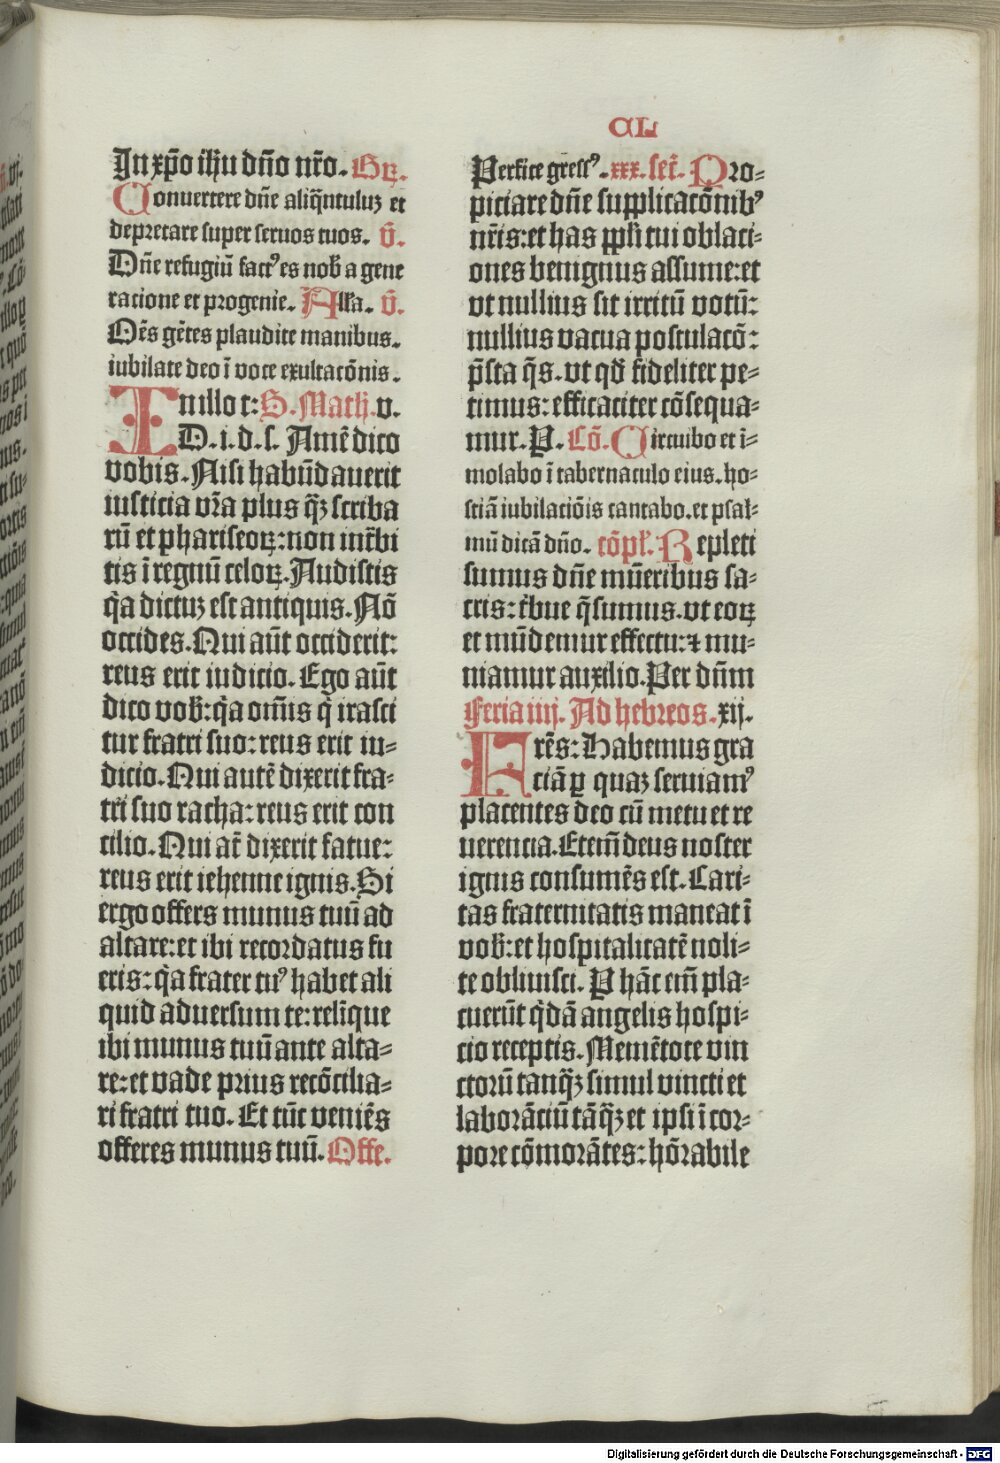 CL
In xp̄o ih̄u dn̄o nr̄o. Gꝝ.
Conuertere dn̄e aliq̄ntuluꝫ et
deprecare super seruos tuos. v̄.
Dn̄e refugiū factꝰ es nob̄ a gene
racione et progenie. Alla. v̄.
Om̄s gētes plaudite manibus.
iubilate deo ī voce exultacōnis.
In illo t: S. Math. v.
D. i. d. s. Amē dico
vobis. Nisi habūdauerit
iusticia vr̄a plus q̄ꝫ scriba
rū et phariseoꝝ: non int̄bi
tis ī regnū celoꝝ. Audistis
q̇a dictuꝫ est antiquis. Nō
occides. Qui aūt occiderit:
reus erit iudicio. Ego aūt
dico vob̄: q̇a om̄is q̇ irasci
tur fratri suo: reus erit iu⸗
dicio. Qui autē dixerit fra⸗
tri suo racha: reus erit con
cilio. Qui at̄ dixerit fatue:
reus erit iehenne ignis. Si
ergo offers munus tuū ad
altare: et ibi recordatus fu
eris: q̇a frater tuꝰ habet ali
quid aduersum te: relīque
ibi munus tuū ante alta⸗
re: et vade prius recōcilia⸗
ri fratri tuo. Et tūc veniēs
offeres munus tuū. Offe.
Perfice gressꝰ. xxx. secr̄. Pro⸗
piciare dn̄e supplicacōnibꝰ
nr̄is: et has ppl̄i tui oblaci⸗
ones benignus assume: et
vt nullius sit irritū votū:
nullius vacua postulacō:
p̄sta q̄s. vt qd̄ fideliter pe⸗
timus: efficaciter cōsequa⸗
mur. P. Cō. Circuibo et ī⸗
molabo ī tabernaculo eius. ho⸗
stiā iubilaciōis cantabo. et psal⸗
mū dicā dn̄o. cōpl̄. Repleti
sumus dn̄e mūeribus sa⸗
cris: t̄bue q̄sumus. vt eoꝝ
et mūdemur effectu: ⁊ mu⸗
niamur auxilio. Per dn̄m
Feria iiij. Ad hebreos. xij.
Frēs: Habemus gra
ciā ꝑ quaꝫ seruiamꝰ
placentes deo cū metu et re
uerencia. Etem̄ deus noster
ignis consumēs est. Cari⸗
tas fraternitatis maneat ī
vob̄: et hospitalitatē noli⸗
te obliuisci. P hāc em̄ pla⸗
cuerūt q̇dā angelis hospi⸗
cio receptis. Memētote vin
ctorū tanq̄ꝫ simul vincti et
laborāciū tāq̄ꝫ et ipsi ī cor⸗
pore cōmorātes: hōrabile
Digitalisierung gefördert durch die Deutsche Forschungsgemeinschaft - DFG